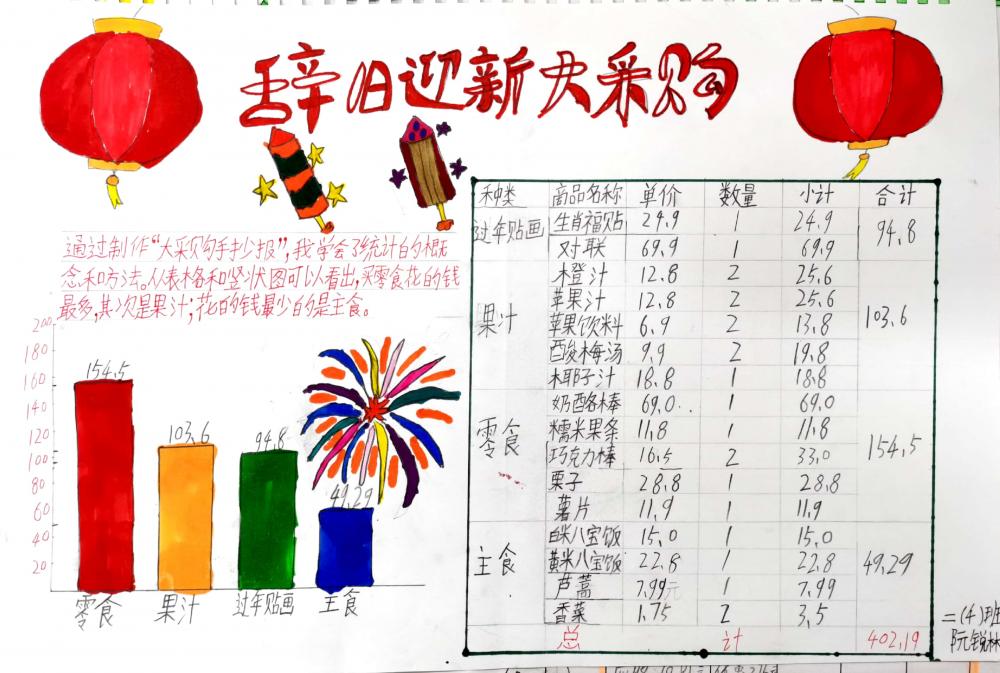 辞旧迎新大采购
通过制作“大采购手抄报”,我学会了统计的概
念和方法。从表格和竖状图可以看出,买零食花的钱
最多,其次是果汁;花的钱最少的是主食。
200
180
160
140
120
100
80
60
40
20
154.5
103.6
94.8
49.29
零食 果汁 过年贴画 主食
种类 商品名称 单价 数量 小计 合计
过年贴画 生肖福贴 24.9 1 24.9 94.8
对联 69.9 1 69.9
果汁 橙汁 12.8 2 25.6 103.6
苹果汁 12.8 2 25.6
苹果饮料 6.9 2 13.8
酸梅汤 9.9 2 19.8
椰子汁 18.8 1 18.8
零食 奶酪棒 69.0 1 69.0 154.5
糯米果条 11.8 1 11.8
巧克力棒 16.5 2 33.0
栗子 28.8 1 28.8
薯片 11.9 1 11.9
主食 白米八宝饭 15.0 1 15.0 49.29
黄米八宝饭 22.8 1 22.8
芦蒿 7.99元 1 7.99
香菜 1.75 2 3.5
总 计 402.19
二(4)班
阮锐林